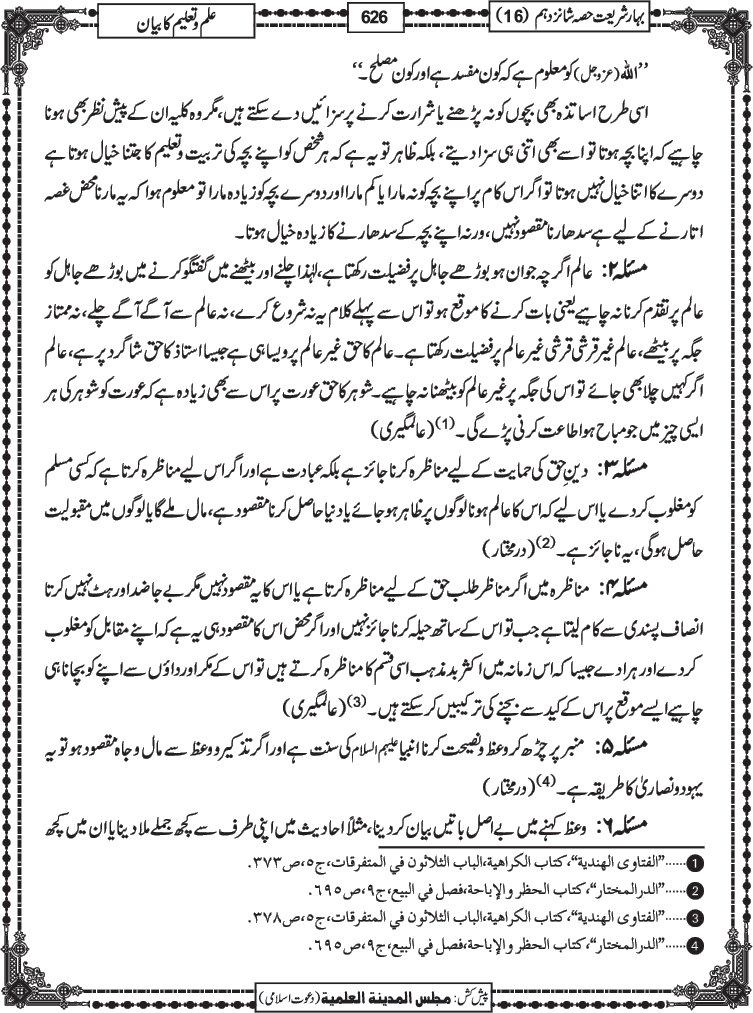 بہار شریعت حصہ شانزدہم (16)
626
علم و تعلیم کا بیان
”اللہ (عزوجل) کو معلوم ہے کہ کون مفسد ہے اور کون مصلح۔“
اسی طرح اساتذہ بھی بچوں کو نہ پڑھنے یا شرارت کرنے پر سزائیں دے سکتے ہیں، مگر وہ کلیہ ان کے پیش نظر بھی ہونا
چاہیے کہ اپنا بچہ ہوتا تو اسے بھی اتنی ہی سزا دیتے، بلکہ ظاہر تو یہ ہے کہ ہر شخص کو اپنے بچہ کی تربیت و تعلیم کا جتنا خیال ہوتا ہے
دوسرے کا اتنا خیال نہیں ہوتا تو اگر اس کام پر اپنے بچہ کو نہ مارا یا کم مارا اور دوسرے بچہ کو زیادہ مارا تو معلوم ہوا کہ یہ مارنا محض غصہ
اتارنے کے لیے ہے سدھارنا مقصود نہیں، ورنہ اپنے بچہ کے سدھارنے کا زیادہ خیال ہوتا۔
مسئلہ ۲: عالم اگرچہ جوان ہو بوڑھے جاہل پر فضیلت رکھتا ہے، لہٰذا چلنے اور بیٹھنے میں گفتگو کرنے میں بوڑھے جاہل کو
عالم پر تقدم کرنا نہ چاہیے یعنی بات کرنے کا موقع ہو تو اس سے پہلے کلام یہ نہ شروع کرے، نہ عالم سے آگے آگے چلے، نہ ممتاز
جگہ پر بیٹھے، عالم غیر قرشی قرشی غیر عالم پر فضیلت رکھتا ہے۔ عالم کا حق غیر عالم پر ویسا ہی ہے جیسا استاذ کا حق شاگرد پر ہے، عالم
اگر کہیں چلا بھی جائے تو اس کی جگہ پر غیر عالم کو بیٹھنا نہ چاہیے۔ شوہر کا حق عورت پر اس سے بھی زیادہ ہے کہ عورت کو شوہر کی ہر
ایسی چیز میں جو مباح ہو اطاعت کرنی پڑے گی۔(1) (عالمگیری)
مسئلہ ۳: دینِ حق کی حمایت کے لیے مناظرہ کرنا جائز ہے بلکہ عبادت ہے اور اگر اس لیے مناظرہ کرتا ہے کہ کسی مسلم
کو مغلوب کر دے یا اس لیے کہ اس کا عالم ہونا لوگوں پر ظاہر ہو جائے یا دنیا حاصل کرنا مقصود ہے، مال ملے گا یا لوگوں میں مقبولیت
حاصل ہوگی، یہ ناجائز ہے۔(2) (درمختار)
مسئلہ ۴: مناظرہ میں اگر مناظر طلب حق کے لیے مناظرہ کرتا ہے یا اس کا یہ مقصود نہیں مگر بے جا ضد اور ہٹ نہیں کرتا
انصاف پسندی سے کام لیتا ہے جب تو اس کے ساتھ حیلہ کرنا جائز نہیں اور اگر محض اس کا مقصود ہی یہ ہے کہ اپنے مقابل کو مغلوب
کر دے اور ہرا دے جیسا کہ اس زمانہ میں اکثر بد مذہب اسی قسم کا مناظرہ کرتے ہیں تو اس کے مکر اور داؤں سے اپنے کو بچانا ہی
چاہیے ایسے موقع پر اس کے کید سے بچنے کی ترکیبیں کر سکتے ہیں۔(3) (عالمگیری)
مسئلہ ۵: منبر پر چڑھ کر وعظ و نصیحت کرنا انبیا علیہم السلام کی سنت ہے اور اگر تذکیر و وعظ سے مال و جاہ مقصود ہو تو یہ
یہود و نصاریٰ کا طریقہ ہے۔(4) (درمختار)
مسئلہ ۶: وعظ کہنے میں بے اصل باتیں بیان کر دینا، مثلاً احادیث میں اپنی طرف سے کچھ جملے ملا دینا یا ان میں کچھ
1......”الفتاوی الهندیة“، کتاب الکراهیة، الباب الثلاثون في المتفرقات، ج٥، ص٣٧٣.
2......”الدرالمختار“، کتاب الحظر والإباحة، فصل في البیع، ج٩، ص٦٩٥.
3......”الفتاوی الهندیة“، کتاب الکراهیة، الباب الثلاثون في المتفرقات، ج٥، ص٣٧٨.
4......”الدرالمختار“، کتاب الحظر والإباحة، فصل في البیع، ج٩، ص٦٩٥.
پیش کش: مجلس المدینة العلمیة (دعوت اسلامی)